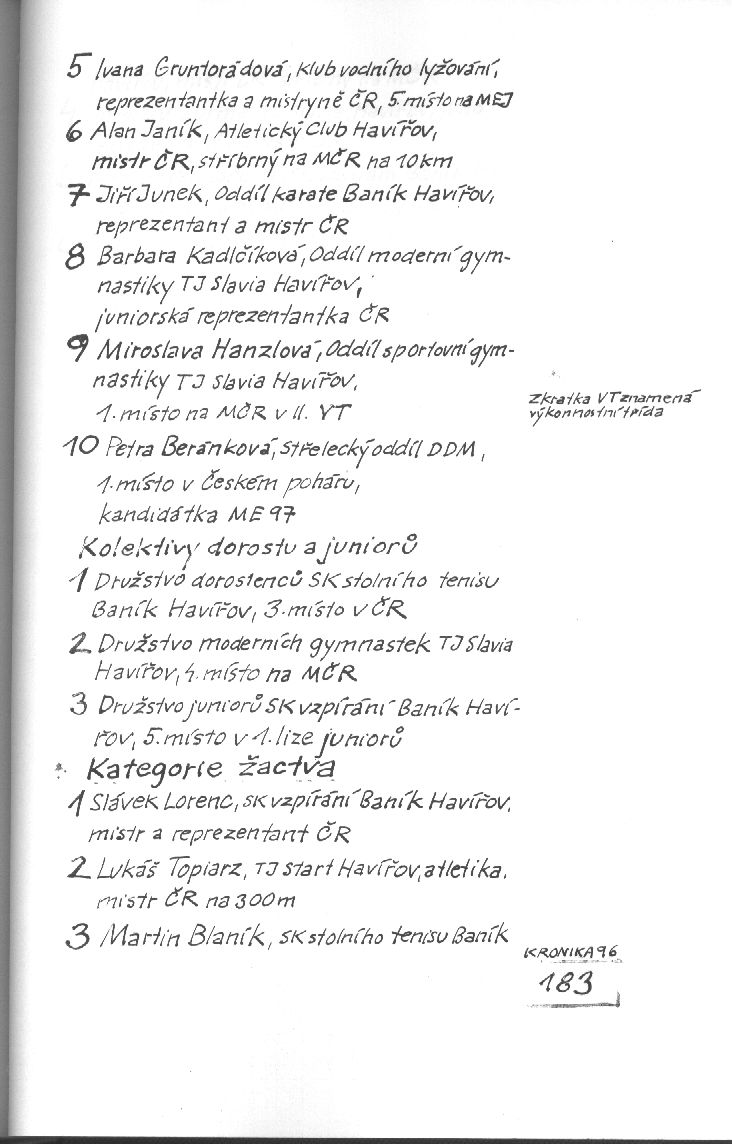 5 Ivana Gruntorádová, Klub vodního lyžování,
reprezentantka a mistryně ČR, 5. místo na MEJ
6 Alan Janík, Atletický Club Havířov,
mistr ČR, stříbrný na MČR na 10 km
7 Jiří Junek, Oddíl karate Baník Havířov,
reprezentant a mistr ČR
8 Barbara Kadlčíková, Oddíl moderní gym-
nastiky TJ Slavia Havířov,
juniorská reprezentantka ČR
9 Miroslava Hanzlová, Oddíl sportovní gym-
nastiky TJ Slavia Havířov,
1. místo na MČR v II. VT
Zkratka VT znamená
výkonnostní třída
10 Petra Beránková, Střelecký oddíl DDM,
1. místo v Českém poháru,
kandidátka ME 97
Kolektivy dorostu a juniorů
1 Družstvo dorostenců SK stolního tenisu
Baník Havířov, 3. místo v ČR
2 Družstvo moderních gymnastek TJ Slavia
Havířov, 4. místo na MČR
3 Družstvo juniorů SK vzpírání Baník Haví-
řov, 5. místo v 1. lize juniorů
Kategorie žactva
1 Slávek Lorenc, SK vzpírání Baník Havířov,
mistr a reprezentant ČR
2 Lukáš Topiarz, TJ Start Havířov, atletika,
mistr ČR na 300 m
3 Martin Blaník, SK stolního tenisu Baník
KRONIKA 96
183